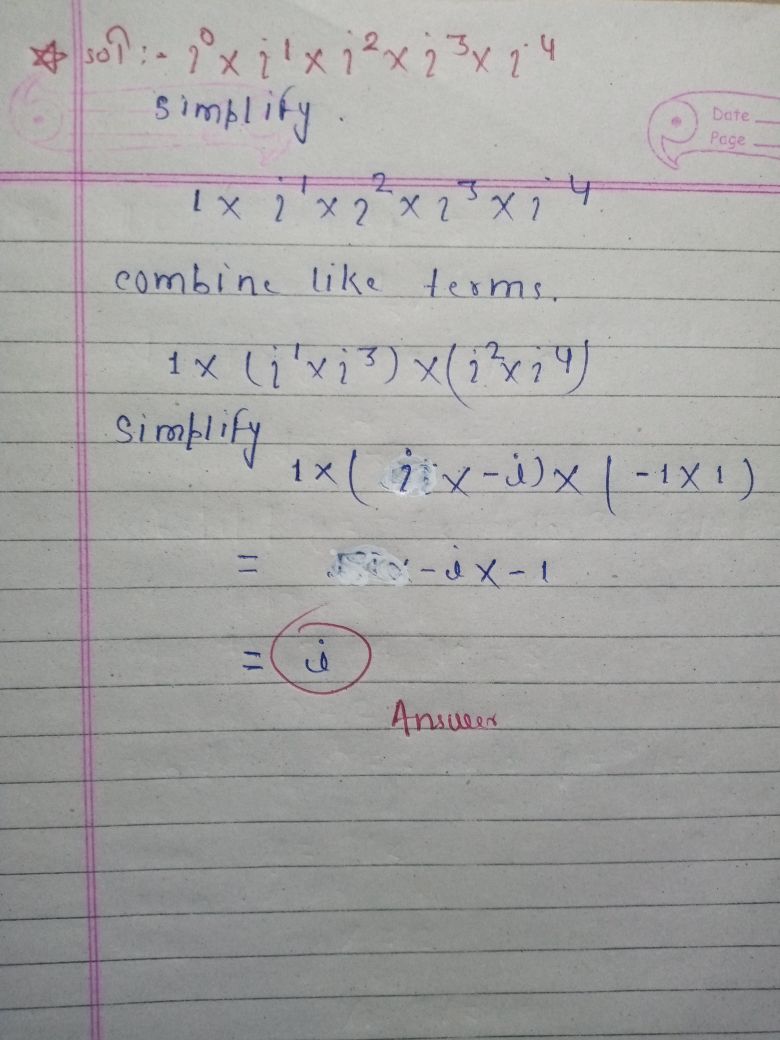 ☆ sol :- i⁰ x i¹ x i² x i³ x i⁴
simplify.
Date
Page
1 x i¹ x i² x i³ x i⁴
combine like terms.
1 x (i¹ x i³) x (i² x i⁴)
Simplify
1 x ( i x -i) x ( -1 x 1 )
= -i x -1
= i
Answer